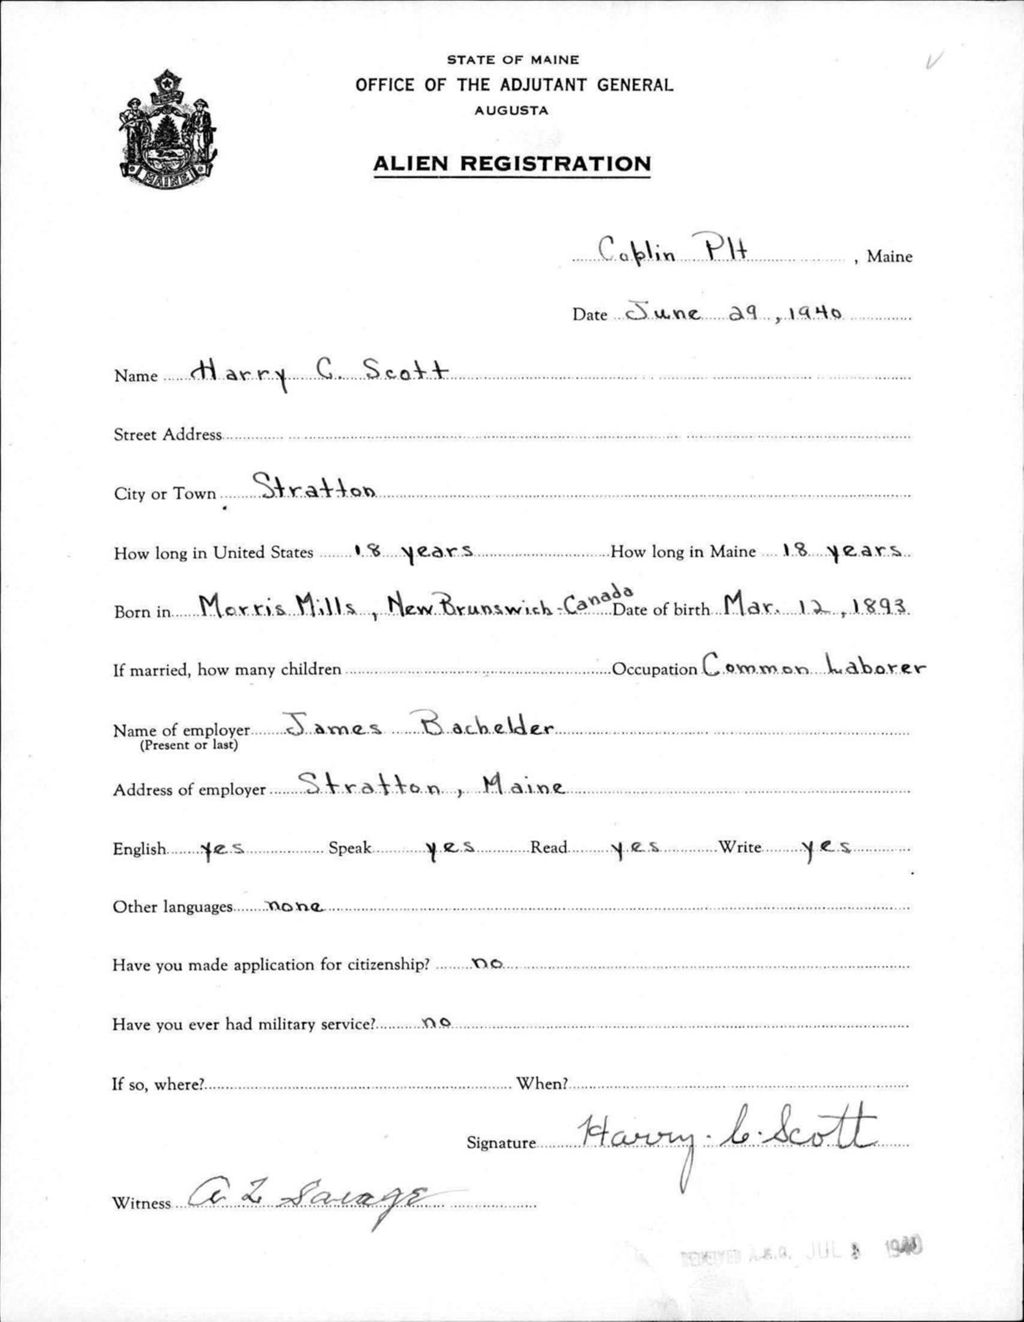 STATE OF MAINE
OFFICE OF THE ADJUTANT GENERAL
AUGUSTA
ALIEN REGISTRATION
MAINE
Coplin Plt, Maine
Date June 29, 1940
Name Harry C. Scott
Street Address
City or Town Stratton
How long in United States 18 years How long in Maine 18 years
Born in Morris Mills, New Brunswick-Canada Date of birth Mar. 12, 1893
If married, how many children Occupation Common Laborer
Name of employer James Bachelder
(Present or last)
Address of employer Stratton, Maine
English yes Speak yes Read yes Write yes
Other languages none
Have you made application for citizenship? no
Have you ever had military service? no
If so, where? When?
Signature Harry. C. Scott
Witness A L Savage
RECEIVED A.G.O. JUL 1940